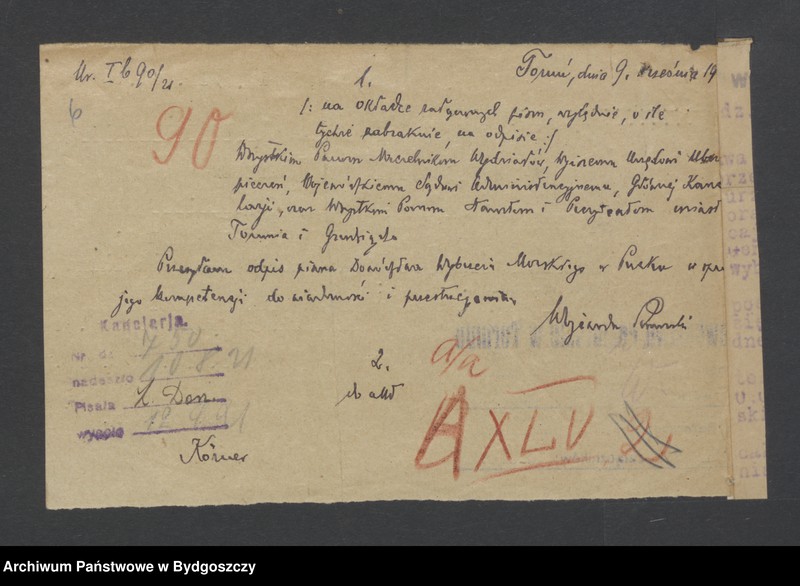 Nr. I b 90/21.
Toruń, dnia 9. września 19
6
90
1.
/: na okładce załączonych pism, względnie, o ile
tychże zabraknie, na odpisie :/
Wszystkim Panom Naczelnikom Wydziałów, Wyższemu Urzędowi Ubez
pieczeń, Wojewódzkiemu Sądowi Administracyjnemu, Głównej Kance
larji, oraz Wszystkim Panom Starostom i Prezydentom miast
Torunia i Grudziądza
Przesyłam odpis pisma Dowództwa Wybrzeża Morskiego w Pucku w spra
jego kompetencji do wiadomości i przestrzegania
Wojewoda Pomorski
Kancelarja.
Nr. dz. 750
nadeszło 10.8.21
Pisała
wyszło
2.
do akt
a/a
A XLV 2
Körner
Archiwum Państwowe w Bydgoszczy